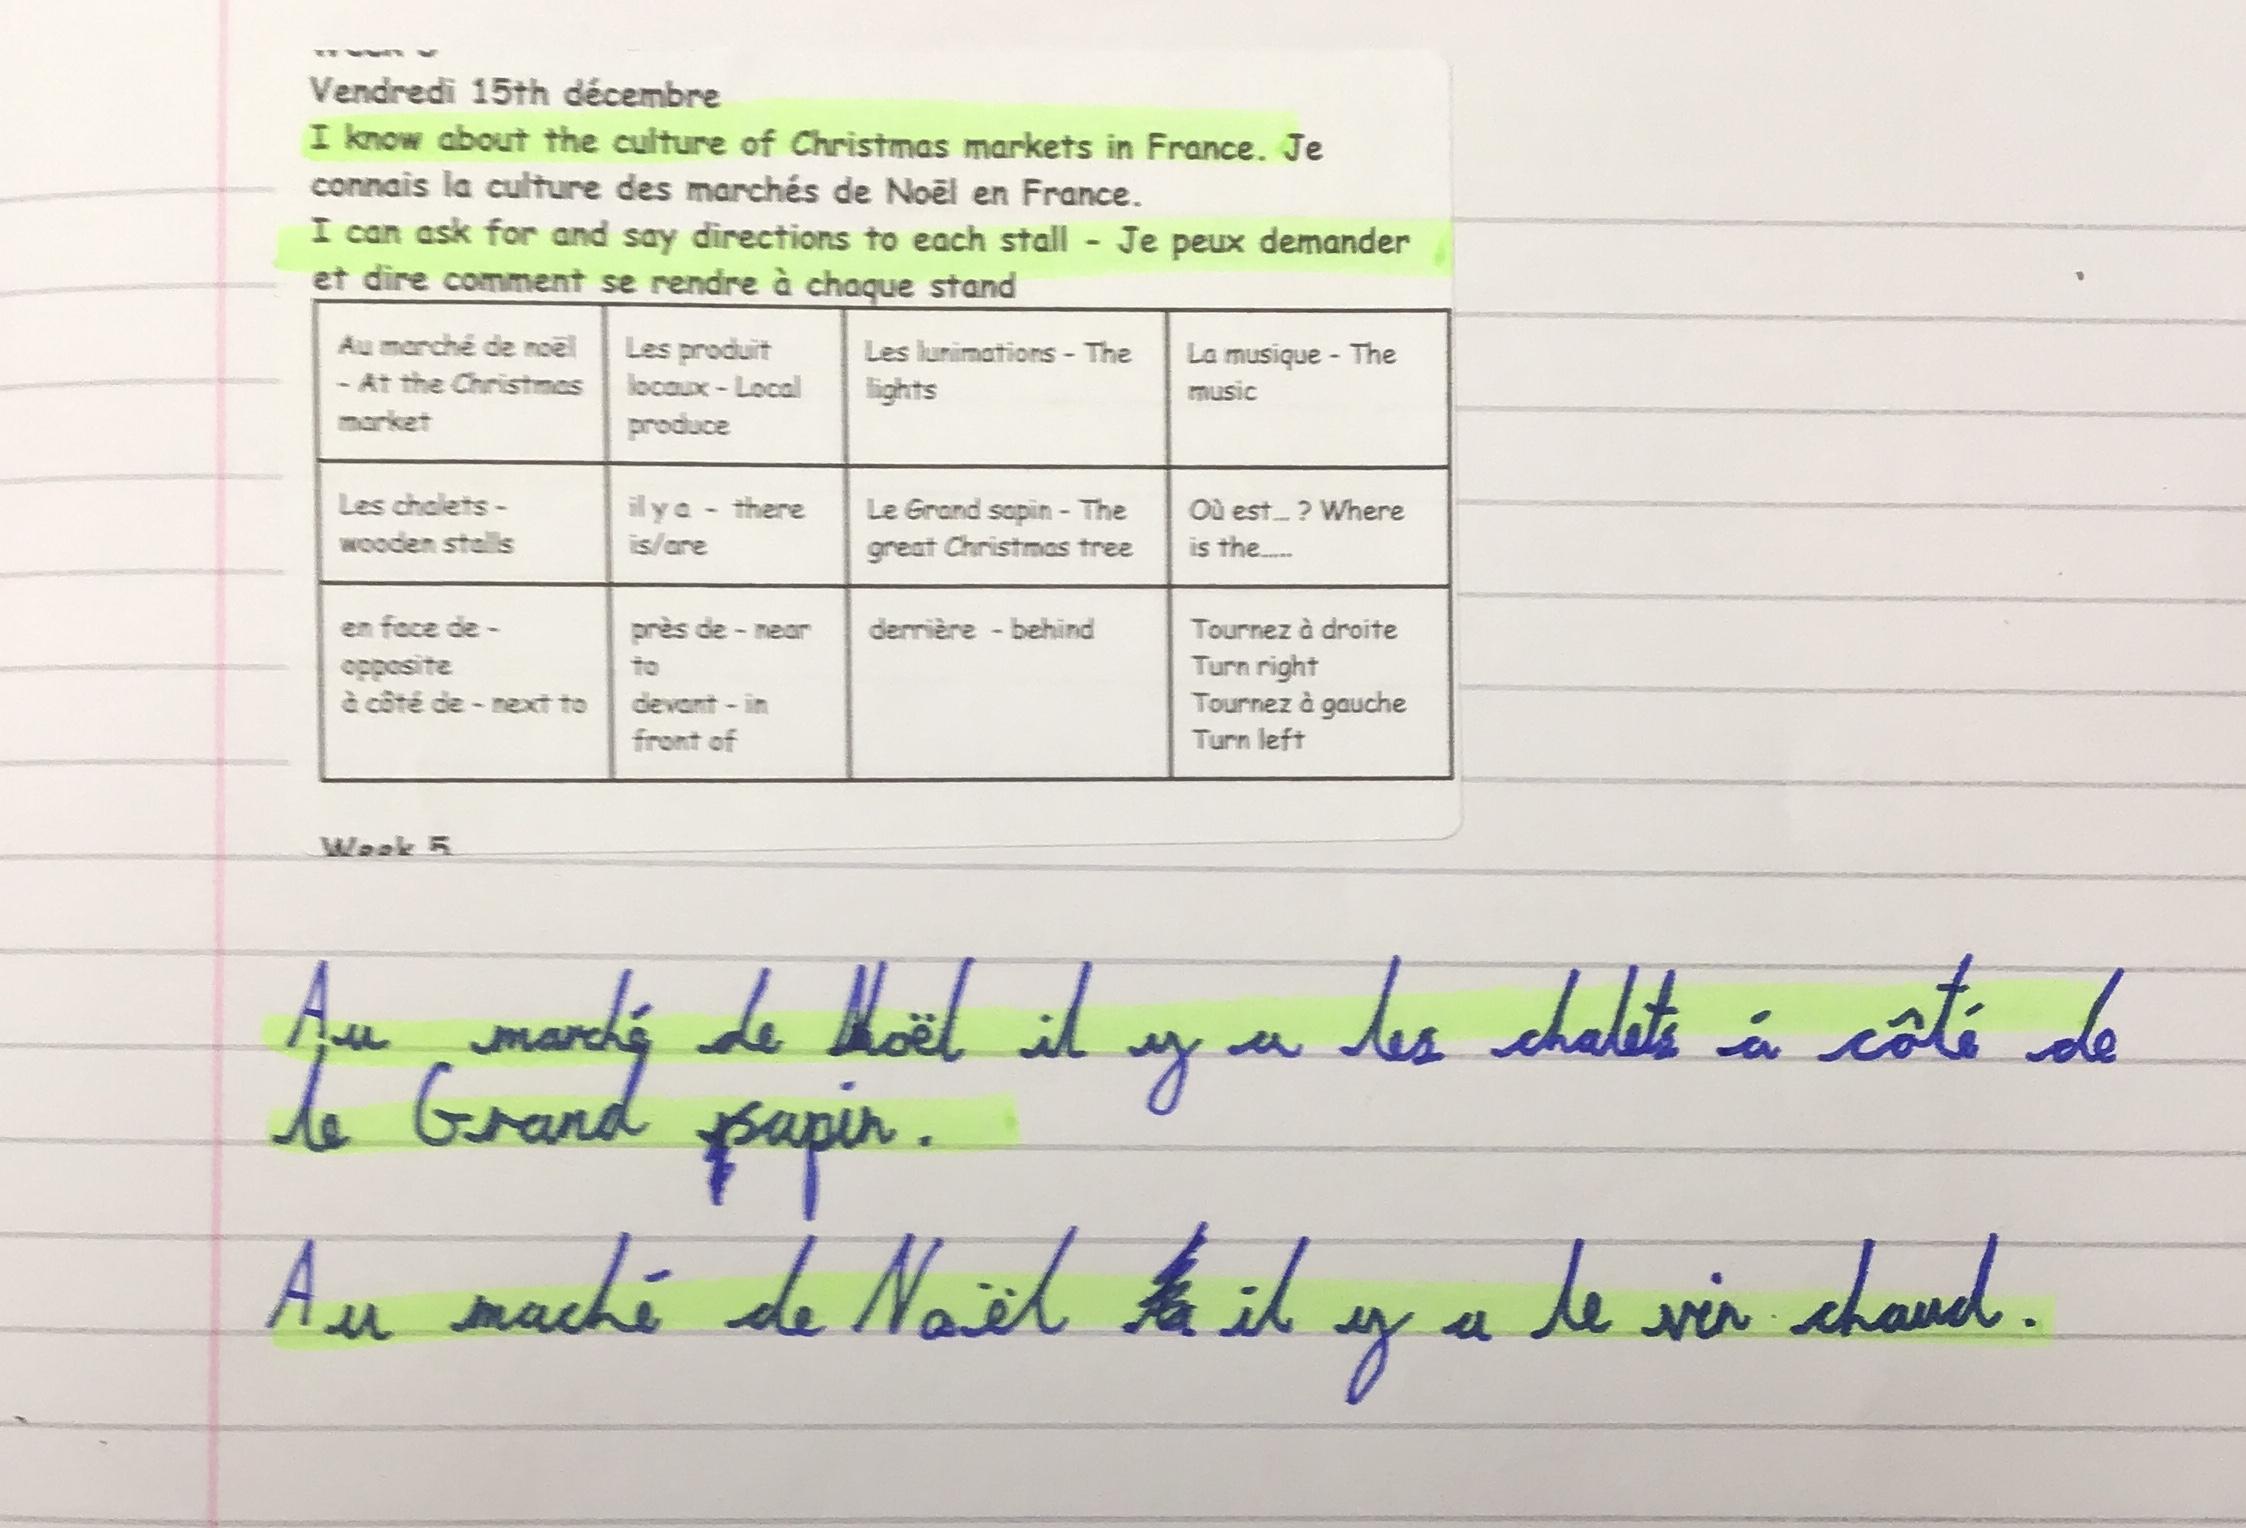 Vendredi 15th décembre
I know about the culture of Christmas markets in France. Je
connais la culture des marchés de Noël en France.
I can ask for and say directions to each stall - Je peux demander
et dire comment se rendre à chaque stand
Au marché de noël
- At the Christmas
market
Les produit
locaux - Local
produce
Les lunimations - The
lights
La musique - The
music
Les chalets -
wooden stalls
il y a - there
is/are
Le Grand sapin - The
great Christmas tree
Où est... ? Where
is the.....
en face de -
opposite
à côté de - next to
près de - near
to
devant - in
front of
derrière - behind
Tournez à droite
Turn right
Tournez à gauche
Turn left
Week 5
Au marché de Noël il y a les chalets á côté de
le Grand sapin.
Au maché de Noël il y a le vin chaud.